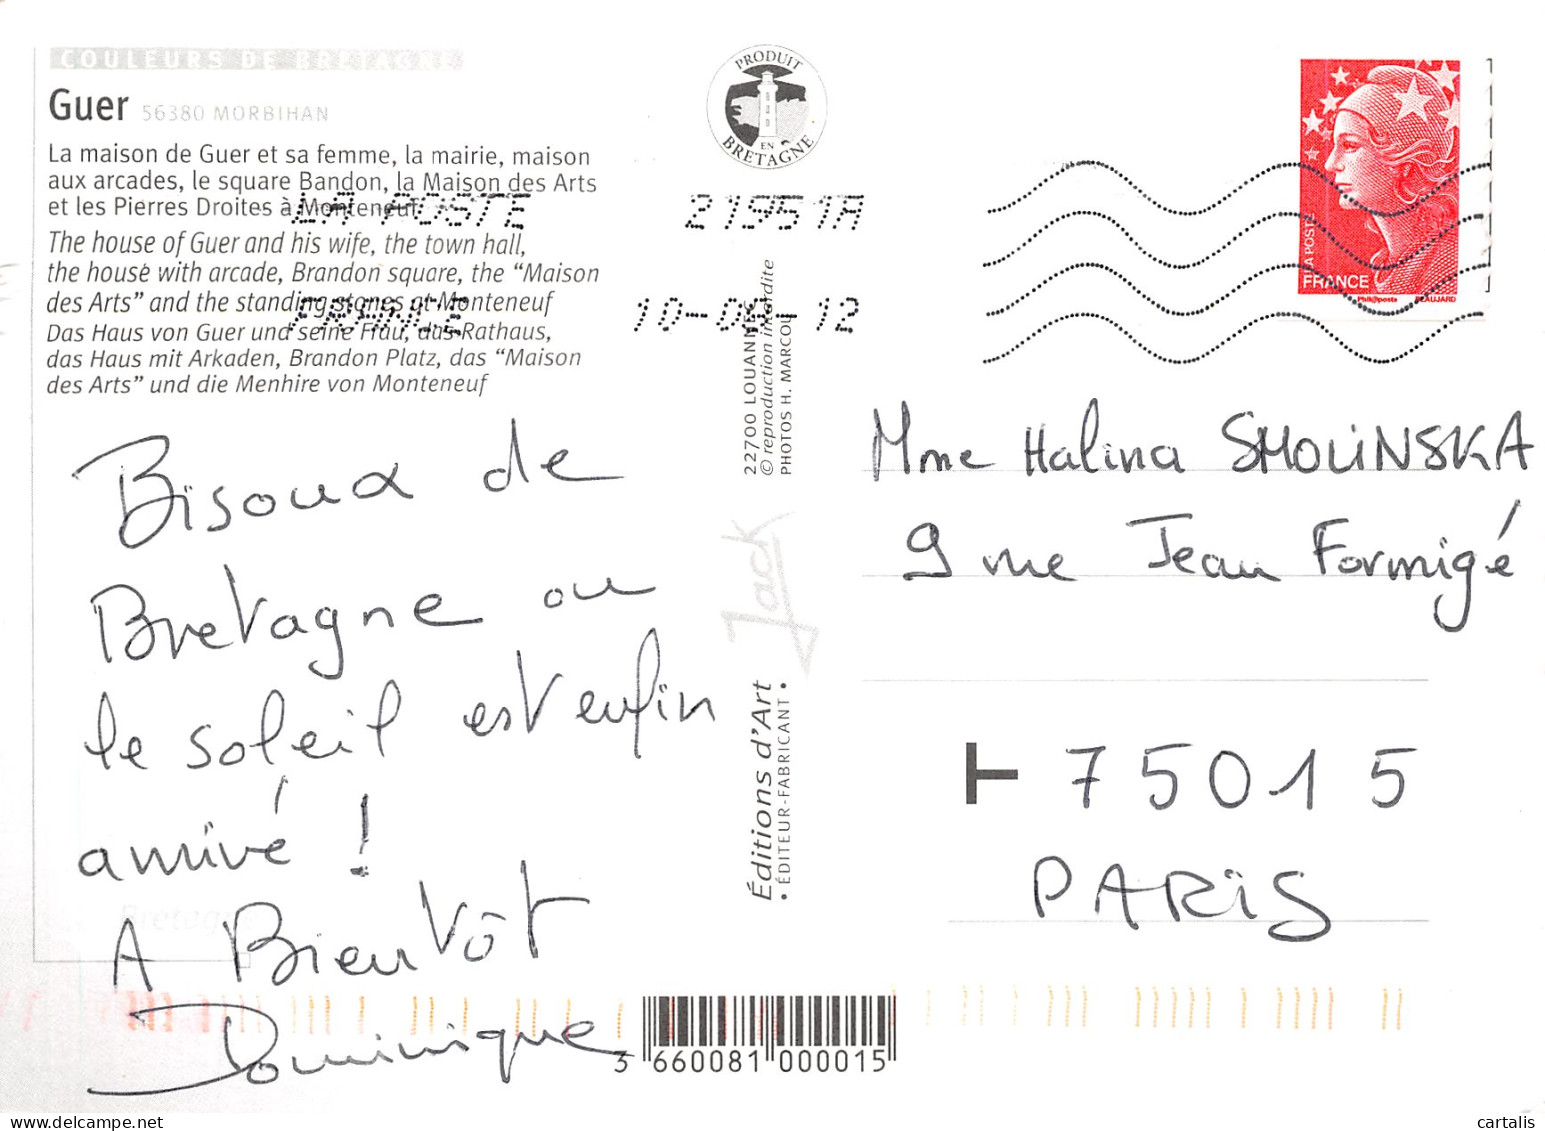 COULEURS DE BRETAGNE
Guer 56380 MORBIHAN
La maison de Guer et sa femme, la mairie, maison
aux arcades, le square Bandon, la Maison des Arts
et les Pierres Droites à Monteneuf
The house of Guer and his wife, the town hall,
the house with arcade, Brandon square, the “Maison
des Arts” and the standing stones at Monteneuf
Das Haus von Guer und seine Frau, das Rathaus,
das Haus mit Arkaden, Brandon Platz, das “Maison
des Arts” und die Menhire von Monteneuf
LA POSTE 21951A
FRANCE 10-08-12
PRODUIT
EN
BRETAGNE
LA POSTE
FRANCE
Phil@poste BEAUJARD
Bisoux de
Bretagne ou
le soleil est enfin
arrivé !
A Bientôt
Dominique
22700 LOUANNEC
© reproduction interdite
PHOTOS H. MARCOU
Jack
Éditions d’Art
• ÉDITEUR-FABRICANT •
Mme Halina SMOLINSKA
9 rue Jean Formigé
75015
PARIS
Bretagne
3 660081 000015
cartalis